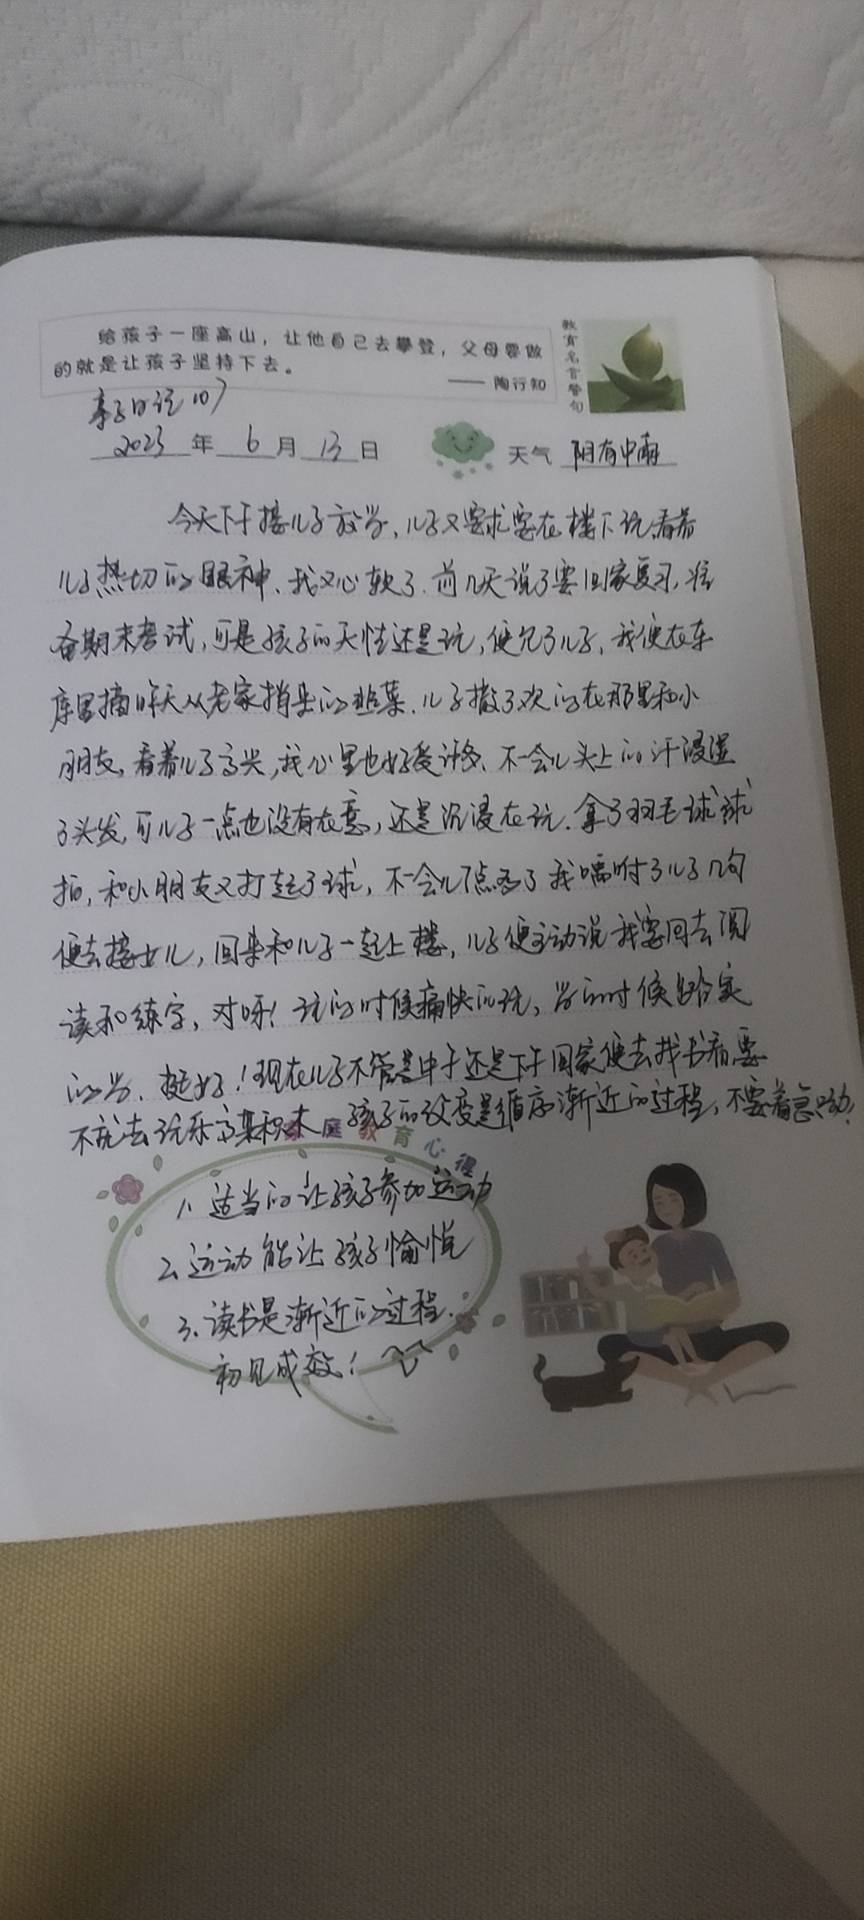 给孩子一座高山，让他自己去攀登，父母要做
的就是让孩子坚持下去。
—— 陶行知
教育名言警句
亲子日记107
2023年6月13日
天气 阴有中雨
今天下午接儿子放学，儿子又要求要在楼下玩，看着
儿子热切的眼神、我又心软了．前几天说了要回家复习，准
备期末考试，可是孩子的天性还是玩，便允了儿子，我便在车
库里摘昨天从老家捎来的韭菜．儿子撒了欢的在那里和小
朋友，看着儿子高兴，我心里也好受许多、不一会儿头上的汗浸湿
了头发，可儿子一点也没有在意，还是沉浸在玩．拿了羽毛球球
拍，和小朋友又打起了球，不一会儿7点多了我嘱咐了儿子几句
便去接女儿，回来和儿子一起上楼，儿子便主动说我要回去阅
读和练字，对呀！玩的时候痛快的玩，学的时候踏实
的学、挺好！现在儿子不管是中午还是下午回家便去找书看，要
不就去玩乐高积木．孩子的改变是循序渐近的过程，不要着急，
家庭教育心得
1、适当的让孩子参加运动
2、运动能让孩子愉悦
3、读书是渐近的过程．
初见成效！